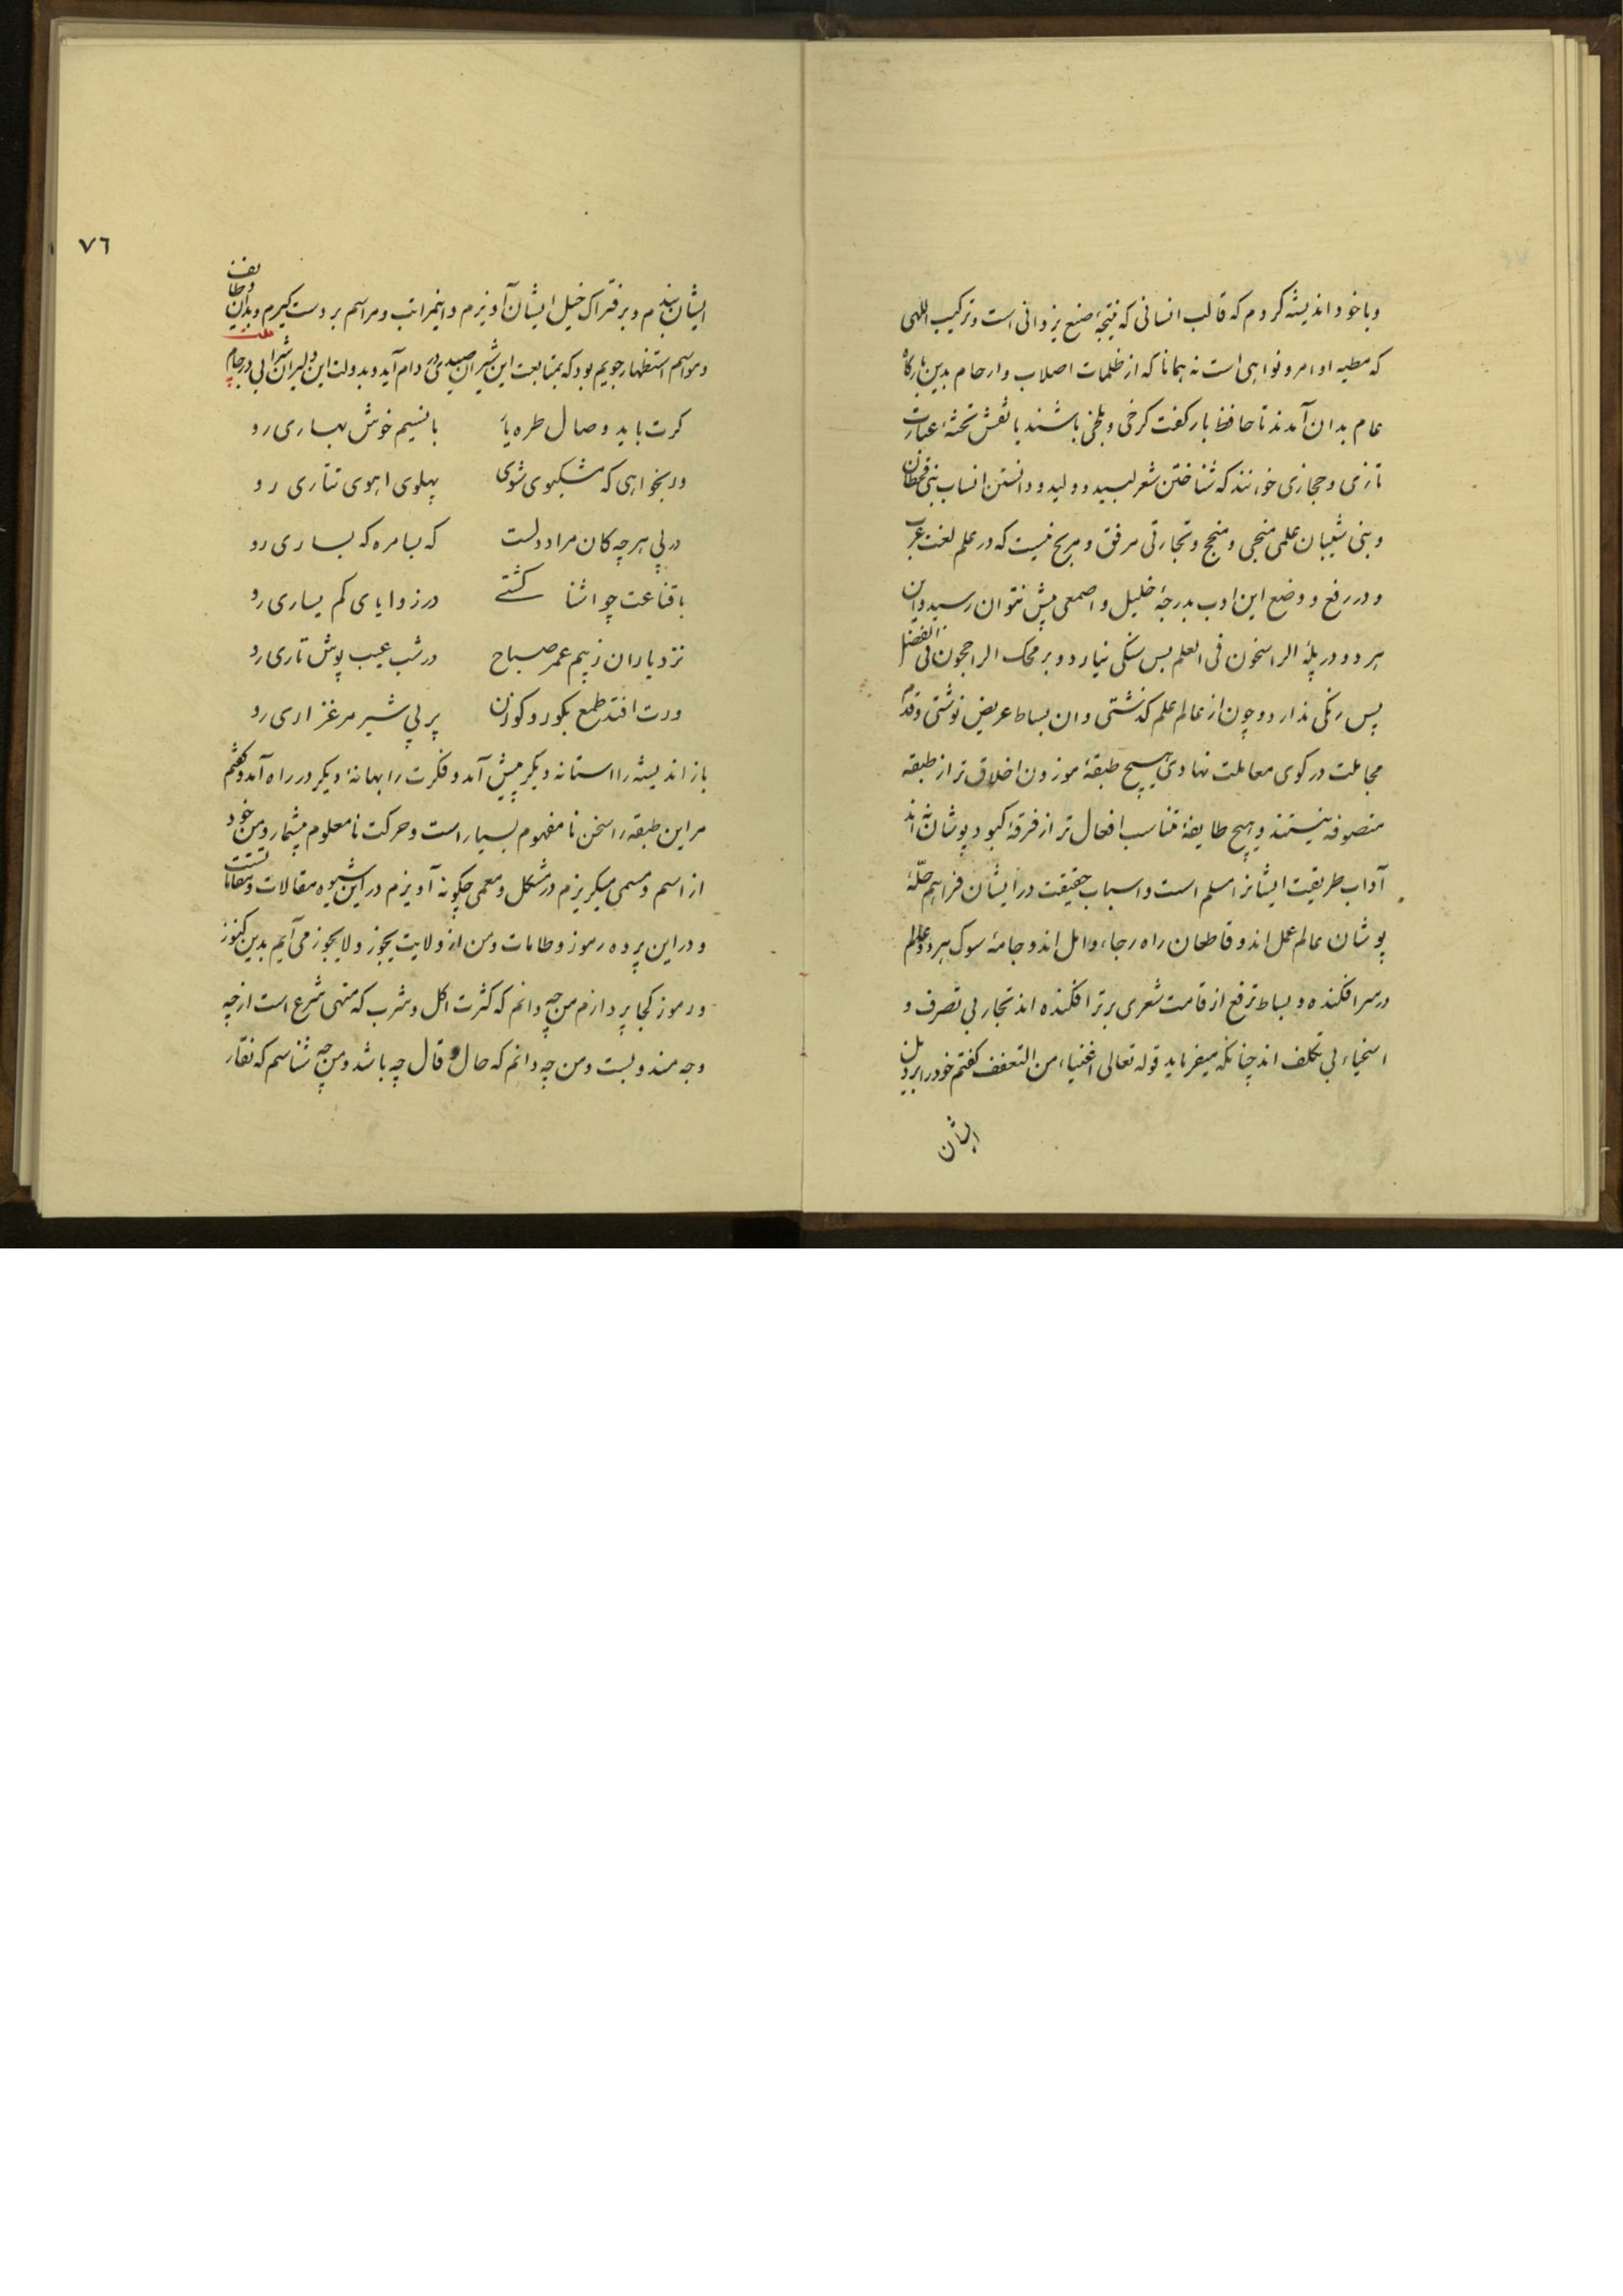 و با خود اندیشه کردم که قالب انسانی که نتیجهٔ صنع یزدانی است و ترکیب اللهی
که مطیه اوامر و نواهی است نه همانا که از ظلمات اصلاب و ارحام بدین بارگاه
عام بدان آمدند تا حافظ بار کفت کرخی و بلخی باشند یا نقش تختهٔ عبارت
تازی و حجازی خوانند که شناختن شعر لبید و ولید و دانستن انساب بنی قحطان
و بنی شیبان علمی منجی و منجح و تجارتی مرفق و مربح نیست که در علم لغت عرب
و در رفع و وضع این ادب بدرجهٔ خلیل و اصمعی پیش نتوان رسید و این
هر دو در پلهٔ الراسخون فی العلم بس سنکی نیارد و بر محک الراجحون فی الفضل
پس رنکی ندارد و چون از عالم علم کذشتی و ان بساط عریض نوشتی و قدم
مجاملت در کوی معاملت نهادی هیچ طبقهٔ موزون اخلاق تر از طبقه
متصوفه نیستند و هیچ طایفهٔ متناسب افعال تر از فرقهٔ کبود پوشان نه اند
آداب طریقت ایشانرا مسلم است و اسباب حقیقت در ایشان فراهم حلّهٔ
پوشان عالم عمل اند و قاطعان راه رجاء و امل اند و جامهٔ سوک هر دو عالم
در سر افکنده و بساط ترفع از قامت شعری برتر افکنده اند تجار بی تصرف و
اسخیاء بی تکلف اند چنانکه میفرماید قوله تعالی اغنیاء من التعفف کفتم خود را بر ذیل
ایشان
٧٦
ایشان بندم و بر فتراک خیل ایشان آویزم و اینمراتب و مراسم بر دست کیرم و بدان وظایف
و مواسم استظهار جویم بود که بمتابعت این شیران صیدی در دام آید و بدولت این دلیران شرابی در جام
کرت باید وصال طره یار با نسیم خوش بهاری رو
ور بخواهی که مشکبوی شوی پهلوی اهوی تتاری رو
در پی هر چه کان مراد دلست که بیامره که بساری رو
با قناعت چو اشنا کشتی در زوایای کم یساری رو
نزد یاران ز بیم عمر صباح در شب عیب پوش تاری رو
ورت افتد طمع بکور و کوزن بر پی شیر مرغزاری رو
باز اندیشه را استانه دیکر پیش آمد و فکرت را بهانهٔ دیکر در راه آمد و کفتم
مر این طبقه را سخن نا مفهوم بسیار است و حرکت نا معلوم بیشمار و من خود
از اسم و مسمی میکریزم در مشکل و معمی چکونه آویزم در این شیوه مقالات و مقامات تستت
و در این پرده رموز و طامات و من از ولایت یجوز و لا یجوز می آیم بدین کنوز
و رموز کجا پردازم من چه دانم که کثرت اکل و شرب که منهی شرع است از چه
وجه مندوبست و من چه دانم که حال و قال چه باشد و من چه شناسم که نقار